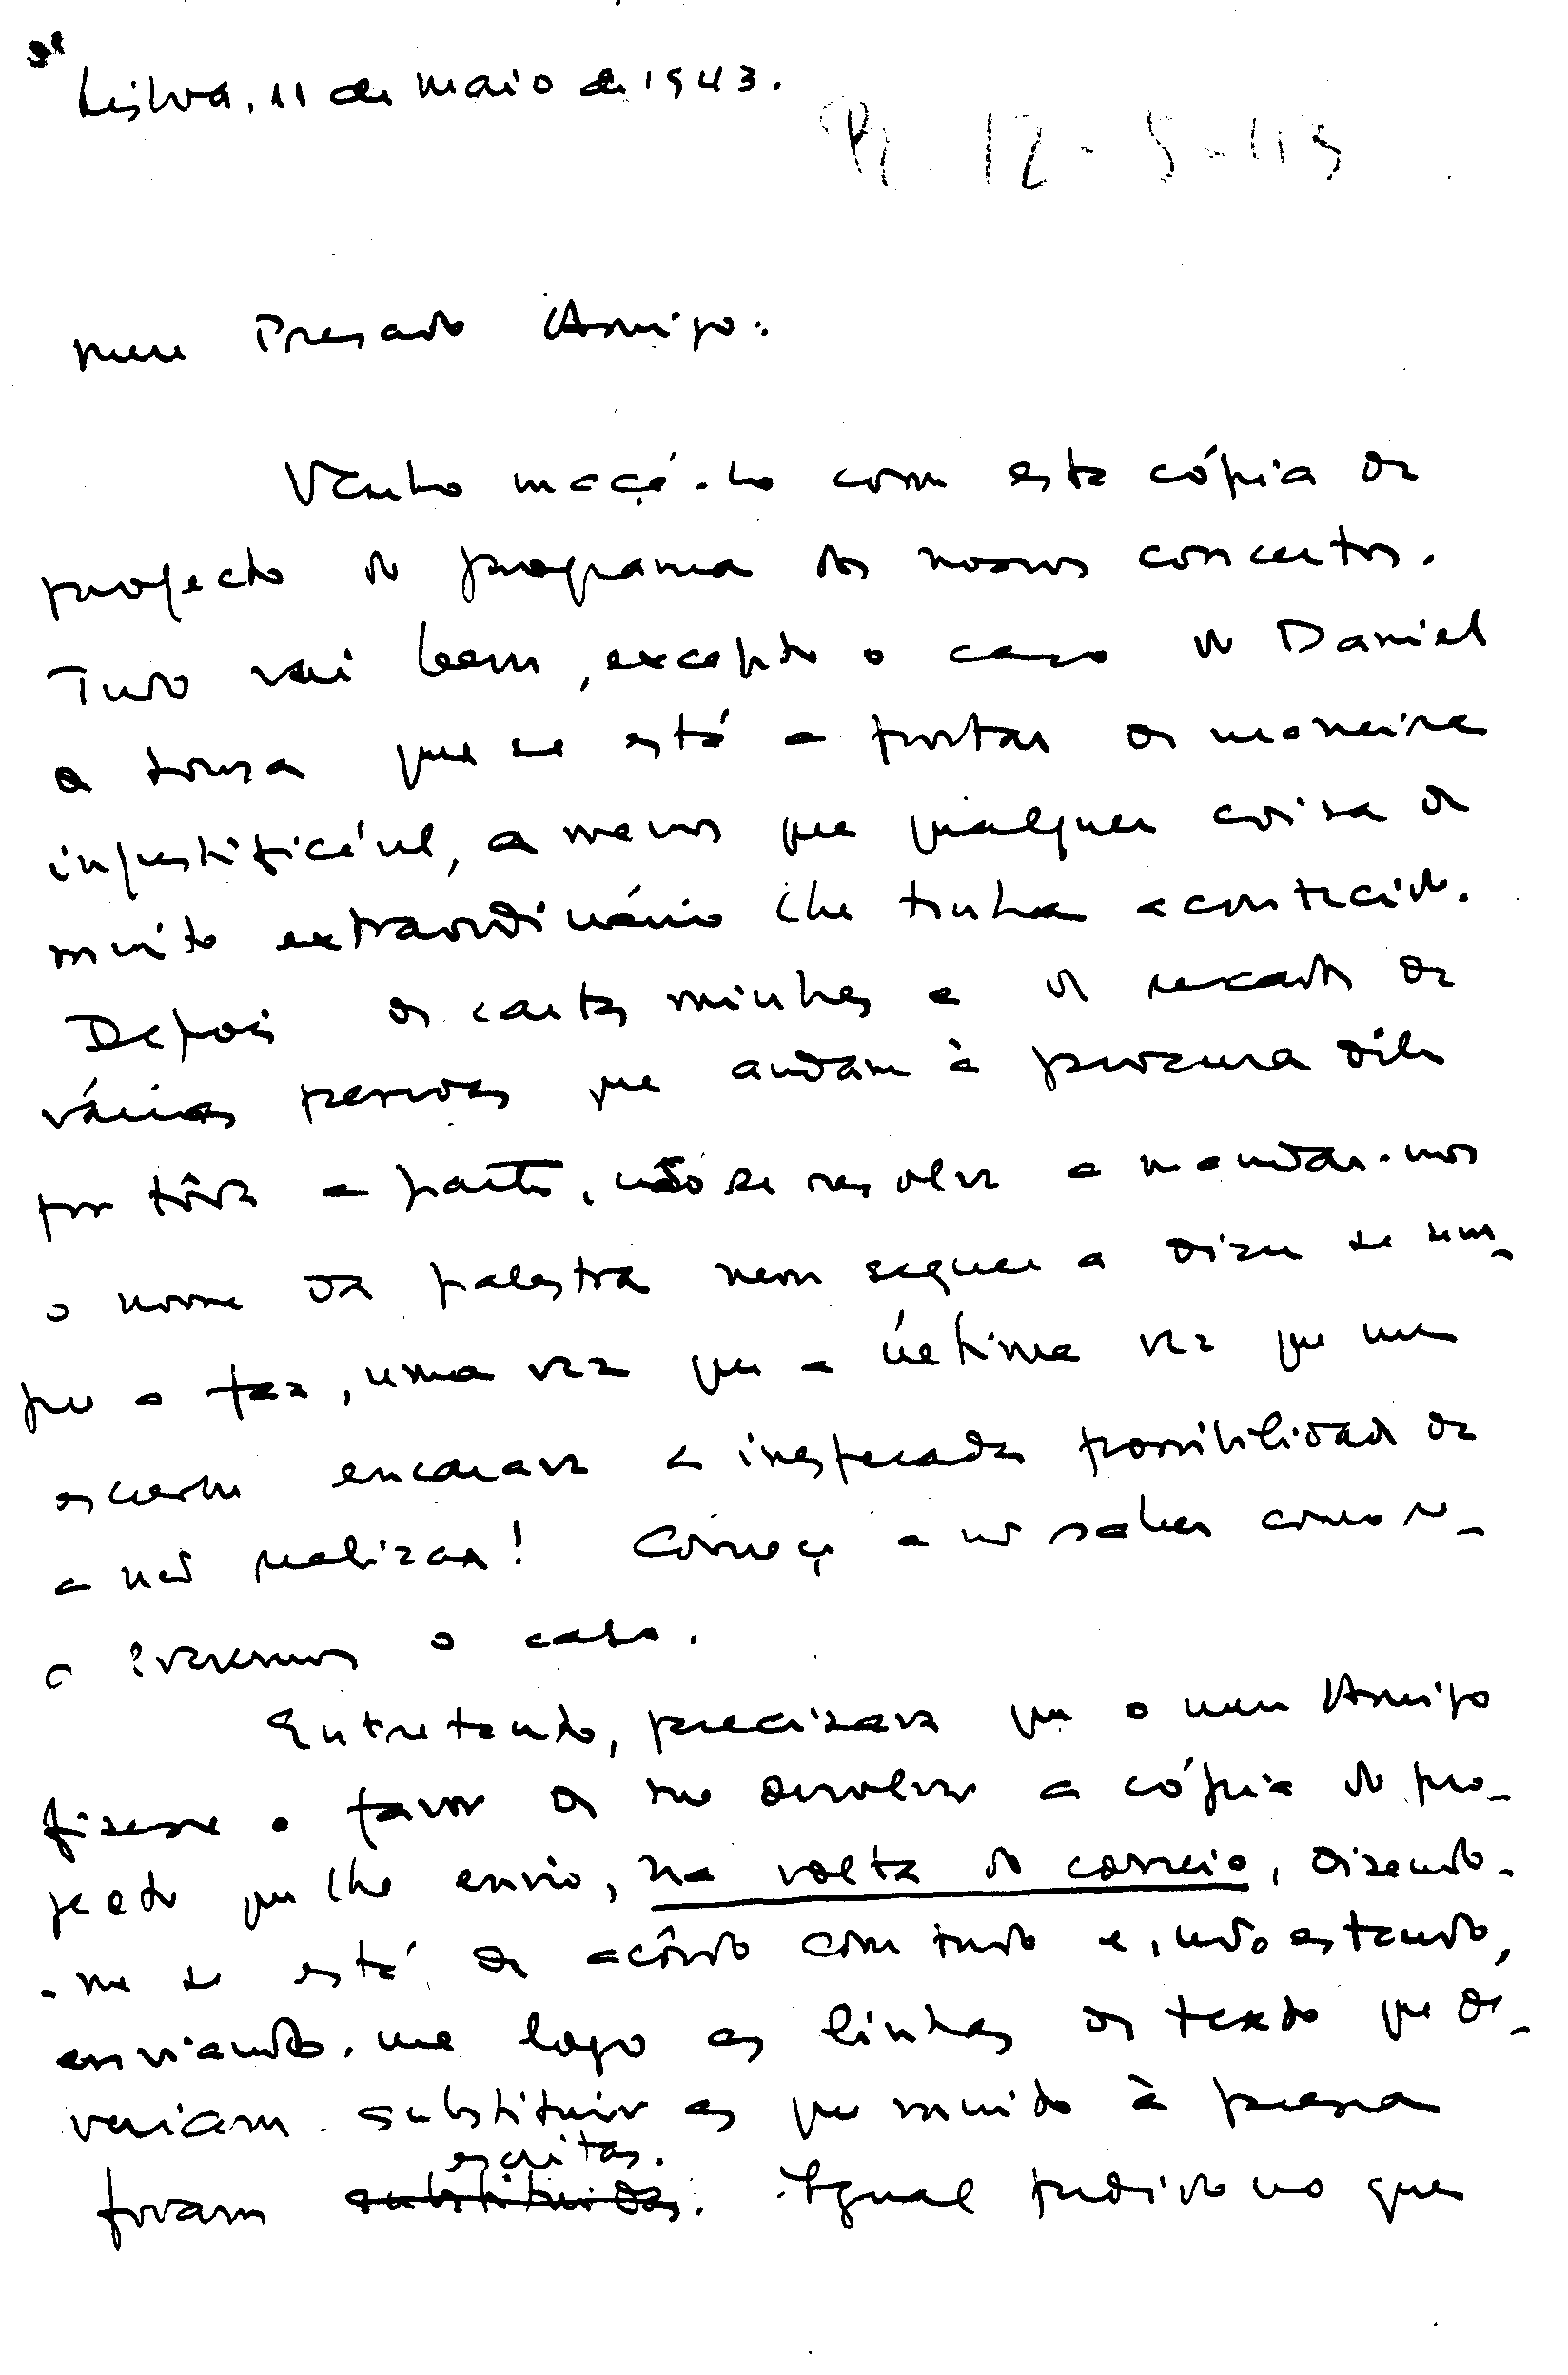 Lisboa, 11 de maio de 1943.
R. 12-5-43
meu Presado Amigo:
Venho maçá-lo com esta cópia do
projecto do programa dos nossos concertos.
Tudo vai bem, excepto o caso do Daniel
de Sousa que se está a portar de maneira
injustificável, a menos que qualquer coisa de
muito extraordinário lhe tenha acontecido.
Depois de cartas minhas e de recados de
várias pessoas que andam à procura dêle
por tôda a parte, não se resolve a mandar-nos
o nome da palestra nem sequer a dizer se sem-
pre a faz, uma vez que a última vez que me
escreveu encarava a inesperada possibilidade de
a não realizar! Começo a não saber como re-
solveremos o caso.
Entretanto, precisava que o meu Amigo
fizesse o favor de me devolver a cópia do pro-
jecto que lhe envio, na volta do correio, dizendo-
-me se está de acôrdo com tudo e, não estando,
enviando-me logo as linhas de texto que de-
veriam substituir as que muito à pressa
foram substituidas. escritas. Igual pedido no que